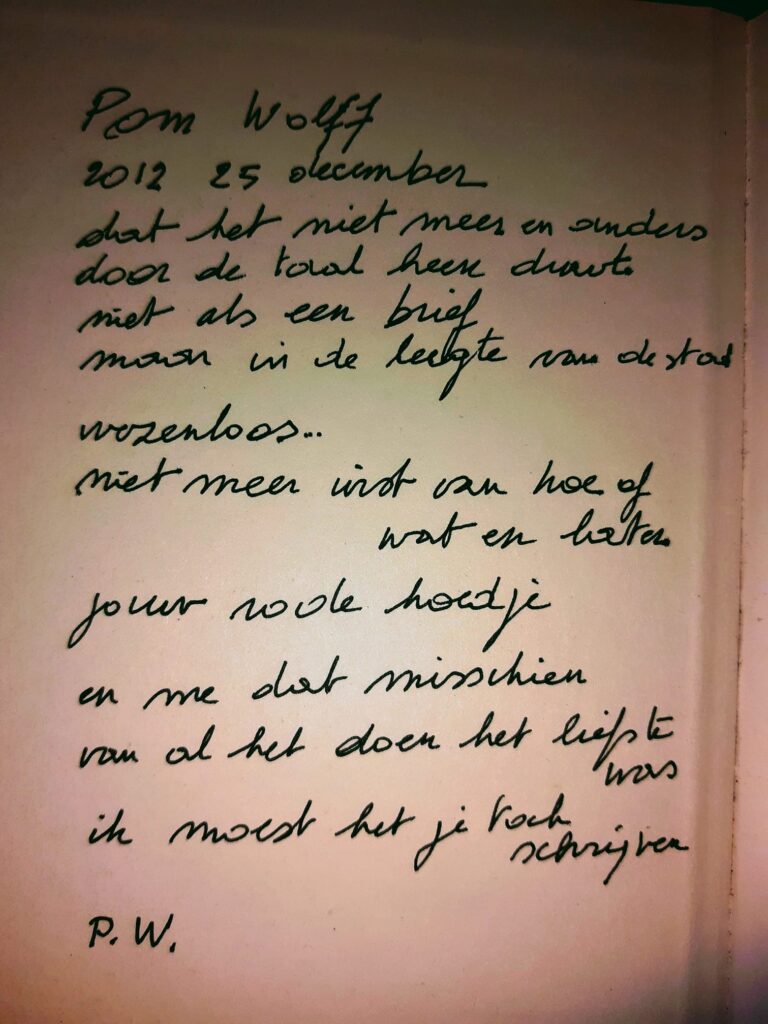 Pom Wolff
2012 25 december
dat het niet meer en anders
door de taal heen
niet als een brief
maar in de leegte van de stad
wezenloos...
niet meer wist van hoe of
wat en laten
jouw rode hoedje
en me dat misschien
van al het doen het liefste
was
ik moest het je toch
schrijven
P.W.